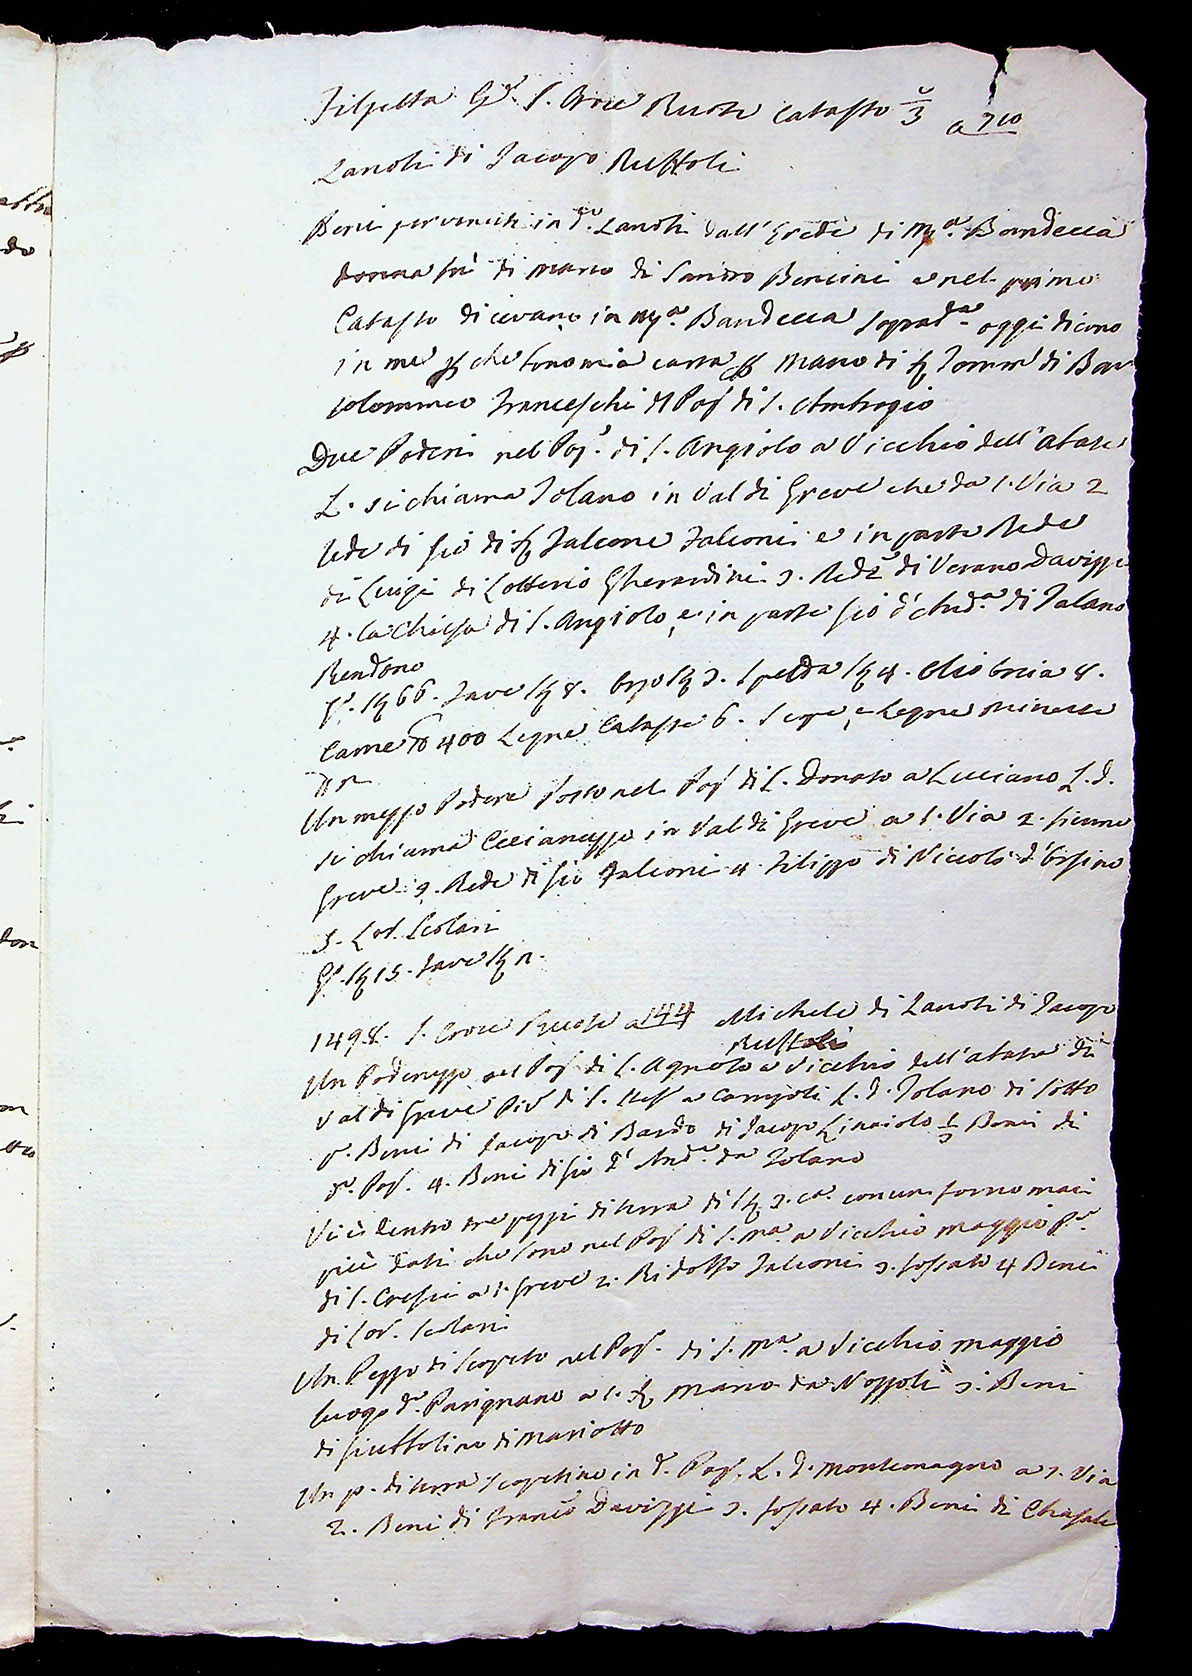 Filsetta G.e S. Croce Ruote Catasto 3 a 710
Zanobi di Jacopo Ruffoli
Beni pervenuti in d.o Zanobi dall'Erede di M.a Bandecca
donna fù di mano di Sandro Bencini e nel primo
Catasto dicevano in M.a Bandecca soprad.a oggi dicono
in me che sono mia carta mano di Tomm.o di Bar
tolommeo Franceschi del Pop di S. Ambrogio
Due Poderi nel Pop. di S. Angiolo a Vicchio dell'Abate
L. si chiama Tolano in Val di Greve che da 1. Via 2
Rede di Gio di Falcone Falconi e in parte Rede
di Luigi di Lotterio Gherardini 3. Rede di Verano Davizzi
4. la Chiesa di S. Angiolo, e in parte Gio d'And.a di Talano
Rendono
G.o 66. Fave 8. Orzo 3. Spelda 4. Olio orcia 8.
Carne 400 Legne Cataste 6. Siepe, e Legne minute
Un mezzo Podere posto nel Pop di S. Donato a Luciano L. d.
si chiama Luciannuzzo in Val di Greve a 1. Via 2. fiume
Greve 3. Rede di Gio Falconi 4 Filippo di Niccolò d'Orsino
5. Lor. Scolari
G.o 15. Fave n.
1498. S. Croce Ruote a 144 Michele di Zanobi di Jacopo
Ruffoli
Un Poderuzzo nel Pop di S. Agnolo a Vicchio dell'abate di
Val di Greve Piv di S. Stef a Campoli L. d. Tolano di sotto
p.o Beni di Jacopo di Bardo di Jacopo Linaiolo Beni di
d.o Pop. 4. Beni di Gio d'And.a da Tolano
Vi è dentro tre pezzi di terra di 3. ca. con un forno mai
più dati che sono nel Pop di S. M.a a Vicchio maggio P.e
di S. Cresci a 1. Greve 2. Ridolfo Falconi 3. fossato 4 Beni
di Lor. Scolari
Un Pezzo di Scopeto nel Pop. di S. M.a a Vicchio maggio
luogo d.o Parignano a 1. mano da Nozzoli 3. Beni
di Giuffolino di Mariotto
Un p. di terra scopetino in d.o Pop. L. d. Montemagno a 1. Via
2. Beni di Franco Davizzi 3. fossato 4. Beni di Chasale